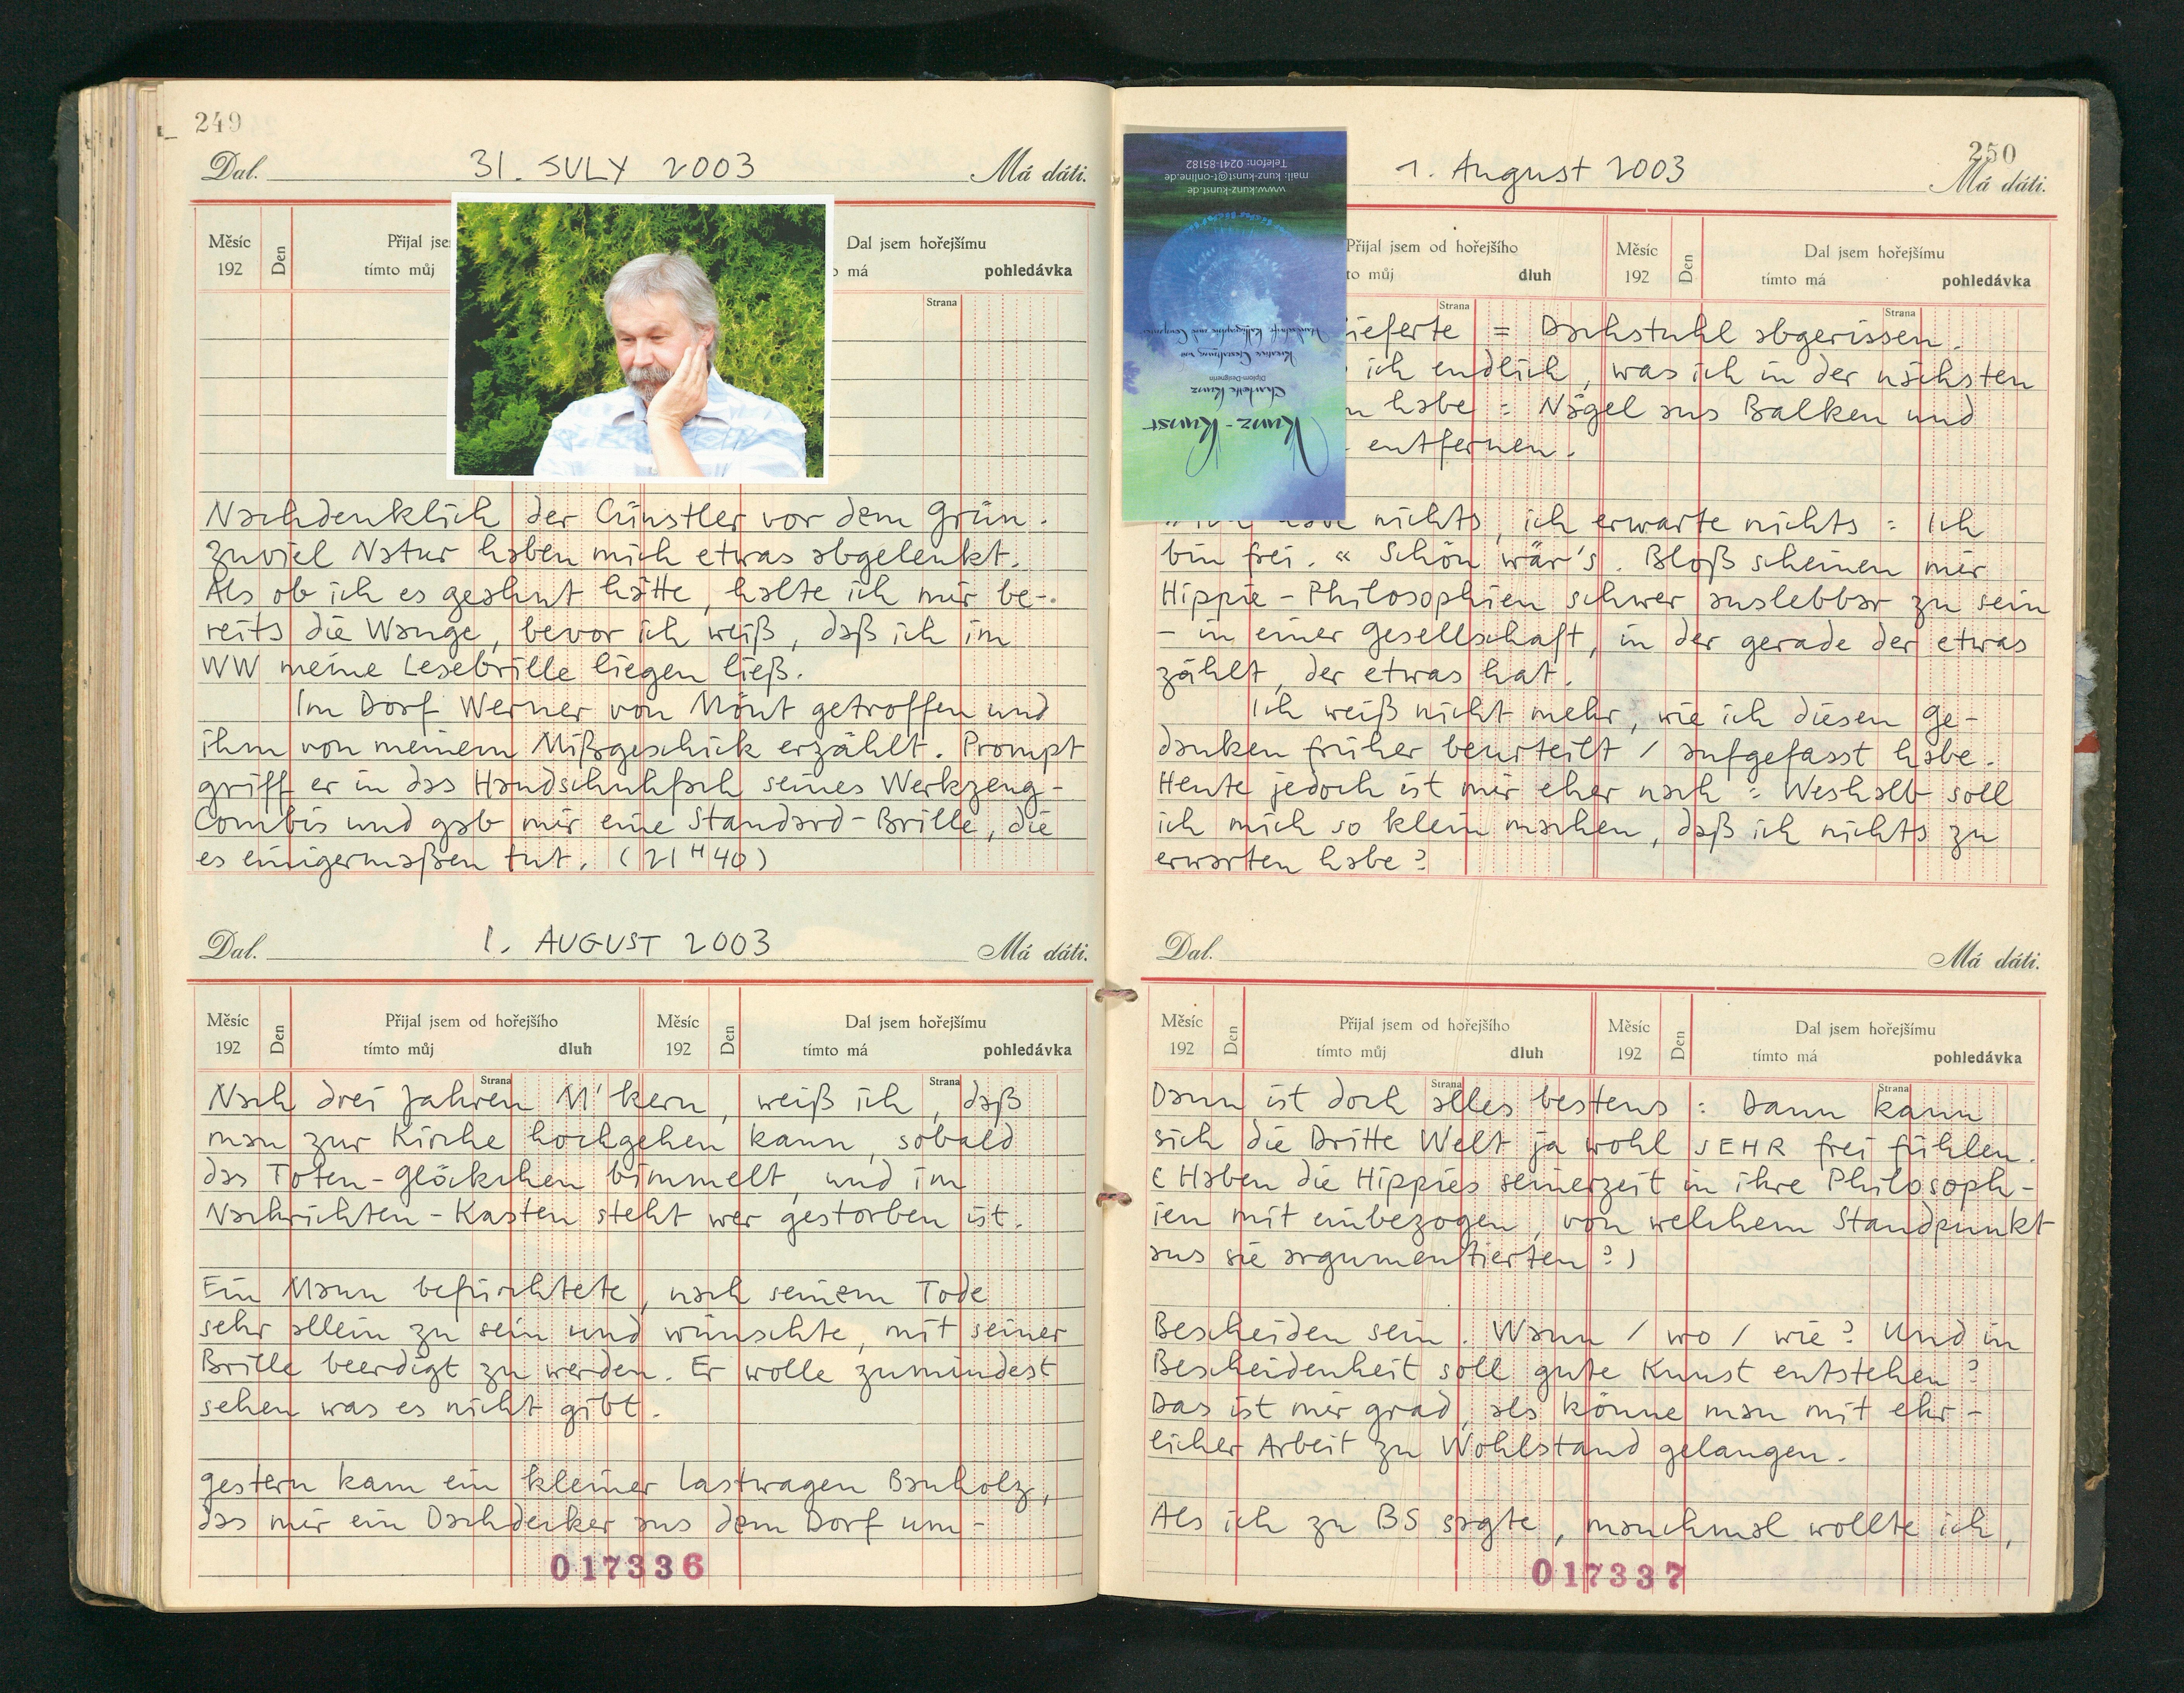 249
Dal. 31. JULY 2003 Má dáti.
Měsíc 192 Den Přijal jse tímto můj Dal jsem hořejšímu má pohledávka
Strana
Nachdenklich der Cünstler vor dem Grün.
Zuviel Natur haben mich etwas abgelenkt.
Als ob ich es geahnt hätte, halte ich mir be-
reits die Wange, bevor ich weiß, daß ich im
WW meine Lesebrille liegen ließ.
Im Dorf Werner von Mönt getroffen und
ihm von meinem Mißgeschick erzählt. Prompt
griff er in das Handschuhfach seines Werkzeug-
Combis und gab mir eine Standard-Brille, die
es einigermaßen tut. (21H40)
Dal. 1. AUGUST 2003 Má dáti.
Měsíc 192 Den Přijal jsem od hořejšího tímto můj dluh Měsíc 192 Den Dal jsem hořejšímu tímto má pohledávka
Strana Strana
Nach drei Jahren M'kern, weiß ich, daß
man zur Kirche hochgehen kann, sobald
das Toten-Glöckchen bimmelt, und im
Nachrichten-Kasten steht wer gestorben ist.
Ein Mann befürchtete, nach seinem Tode
sehr allein zu sein und wünschte, mit seiner
Brille beerdigt zu werden. Er wolle zumindest
sehen was es nicht gibt.
Gestern kam ein kleiner Lastwagen Bauholz,
das mir ein Dachdecker aus dem Dorf um-
017336
250
1. August 2003 Má dáti.
Telefon: 0241-85182
mail: kunz-kunst@t-online.de
www.kunz-kunst.de
Handschrift, Kalligraphie und Computer
Kreative Gestaltung mit
Diplom-Designerin
Charlotte Kunz
Kunz-Kunst
Přijal jsem od hořejšího to můj dluh Měsíc 192 Den Dal jsem hořejšímu tímto má pohledávka
Strana Strana
ieferte = Dachstuhl abgerissen.
ich endlich, was ich in der nächsten
n habe = Nägel aus Balken und
entfernen.
nichts, ich erwarte nichts = Ich
bin frei.« Schön wär's. Bloß scheinen mir
Hippie-Philosophien schwer auslebbar zu sein
– in einer Gesellschaft, in der gerade der etwas
zählt, der etwas hat.
Ich weiß nicht mehr, wie ich diesen Ge-
danken früher beurteilt / aufgefasst habe.
Heute jedoch ist mir eher nach = Weshalb soll
ich mich so klein machen, daß ich nichts zu
erwarten habe?
Dal. Má dáti.
Měsíc 192 Den Přijal jsem od hořejšího tímto můj dluh Měsíc 192 Den Dal jsem hořejšímu tímto má pohledávka
Strana Strana
Dann ist doch alles bestens: Dann kann
sich die Dritte Welt ja wohl SEHR frei fühlen.
(Haben die Hippies seinerzeit in ihre Philosoph-
ien mit einbezogen, von welchem Standpunkt
aus sie argumentierten?)
Bescheiden sein. Wann / wo / wie? Und in
Bescheidenheit soll gute Kunst entstehen?
Das ist mir grad, als könne man mit ehr-
licher Arbeit zu Wohlstand gelangen.
Als ich zu BS sagte, manchmal wollte ich,
017337